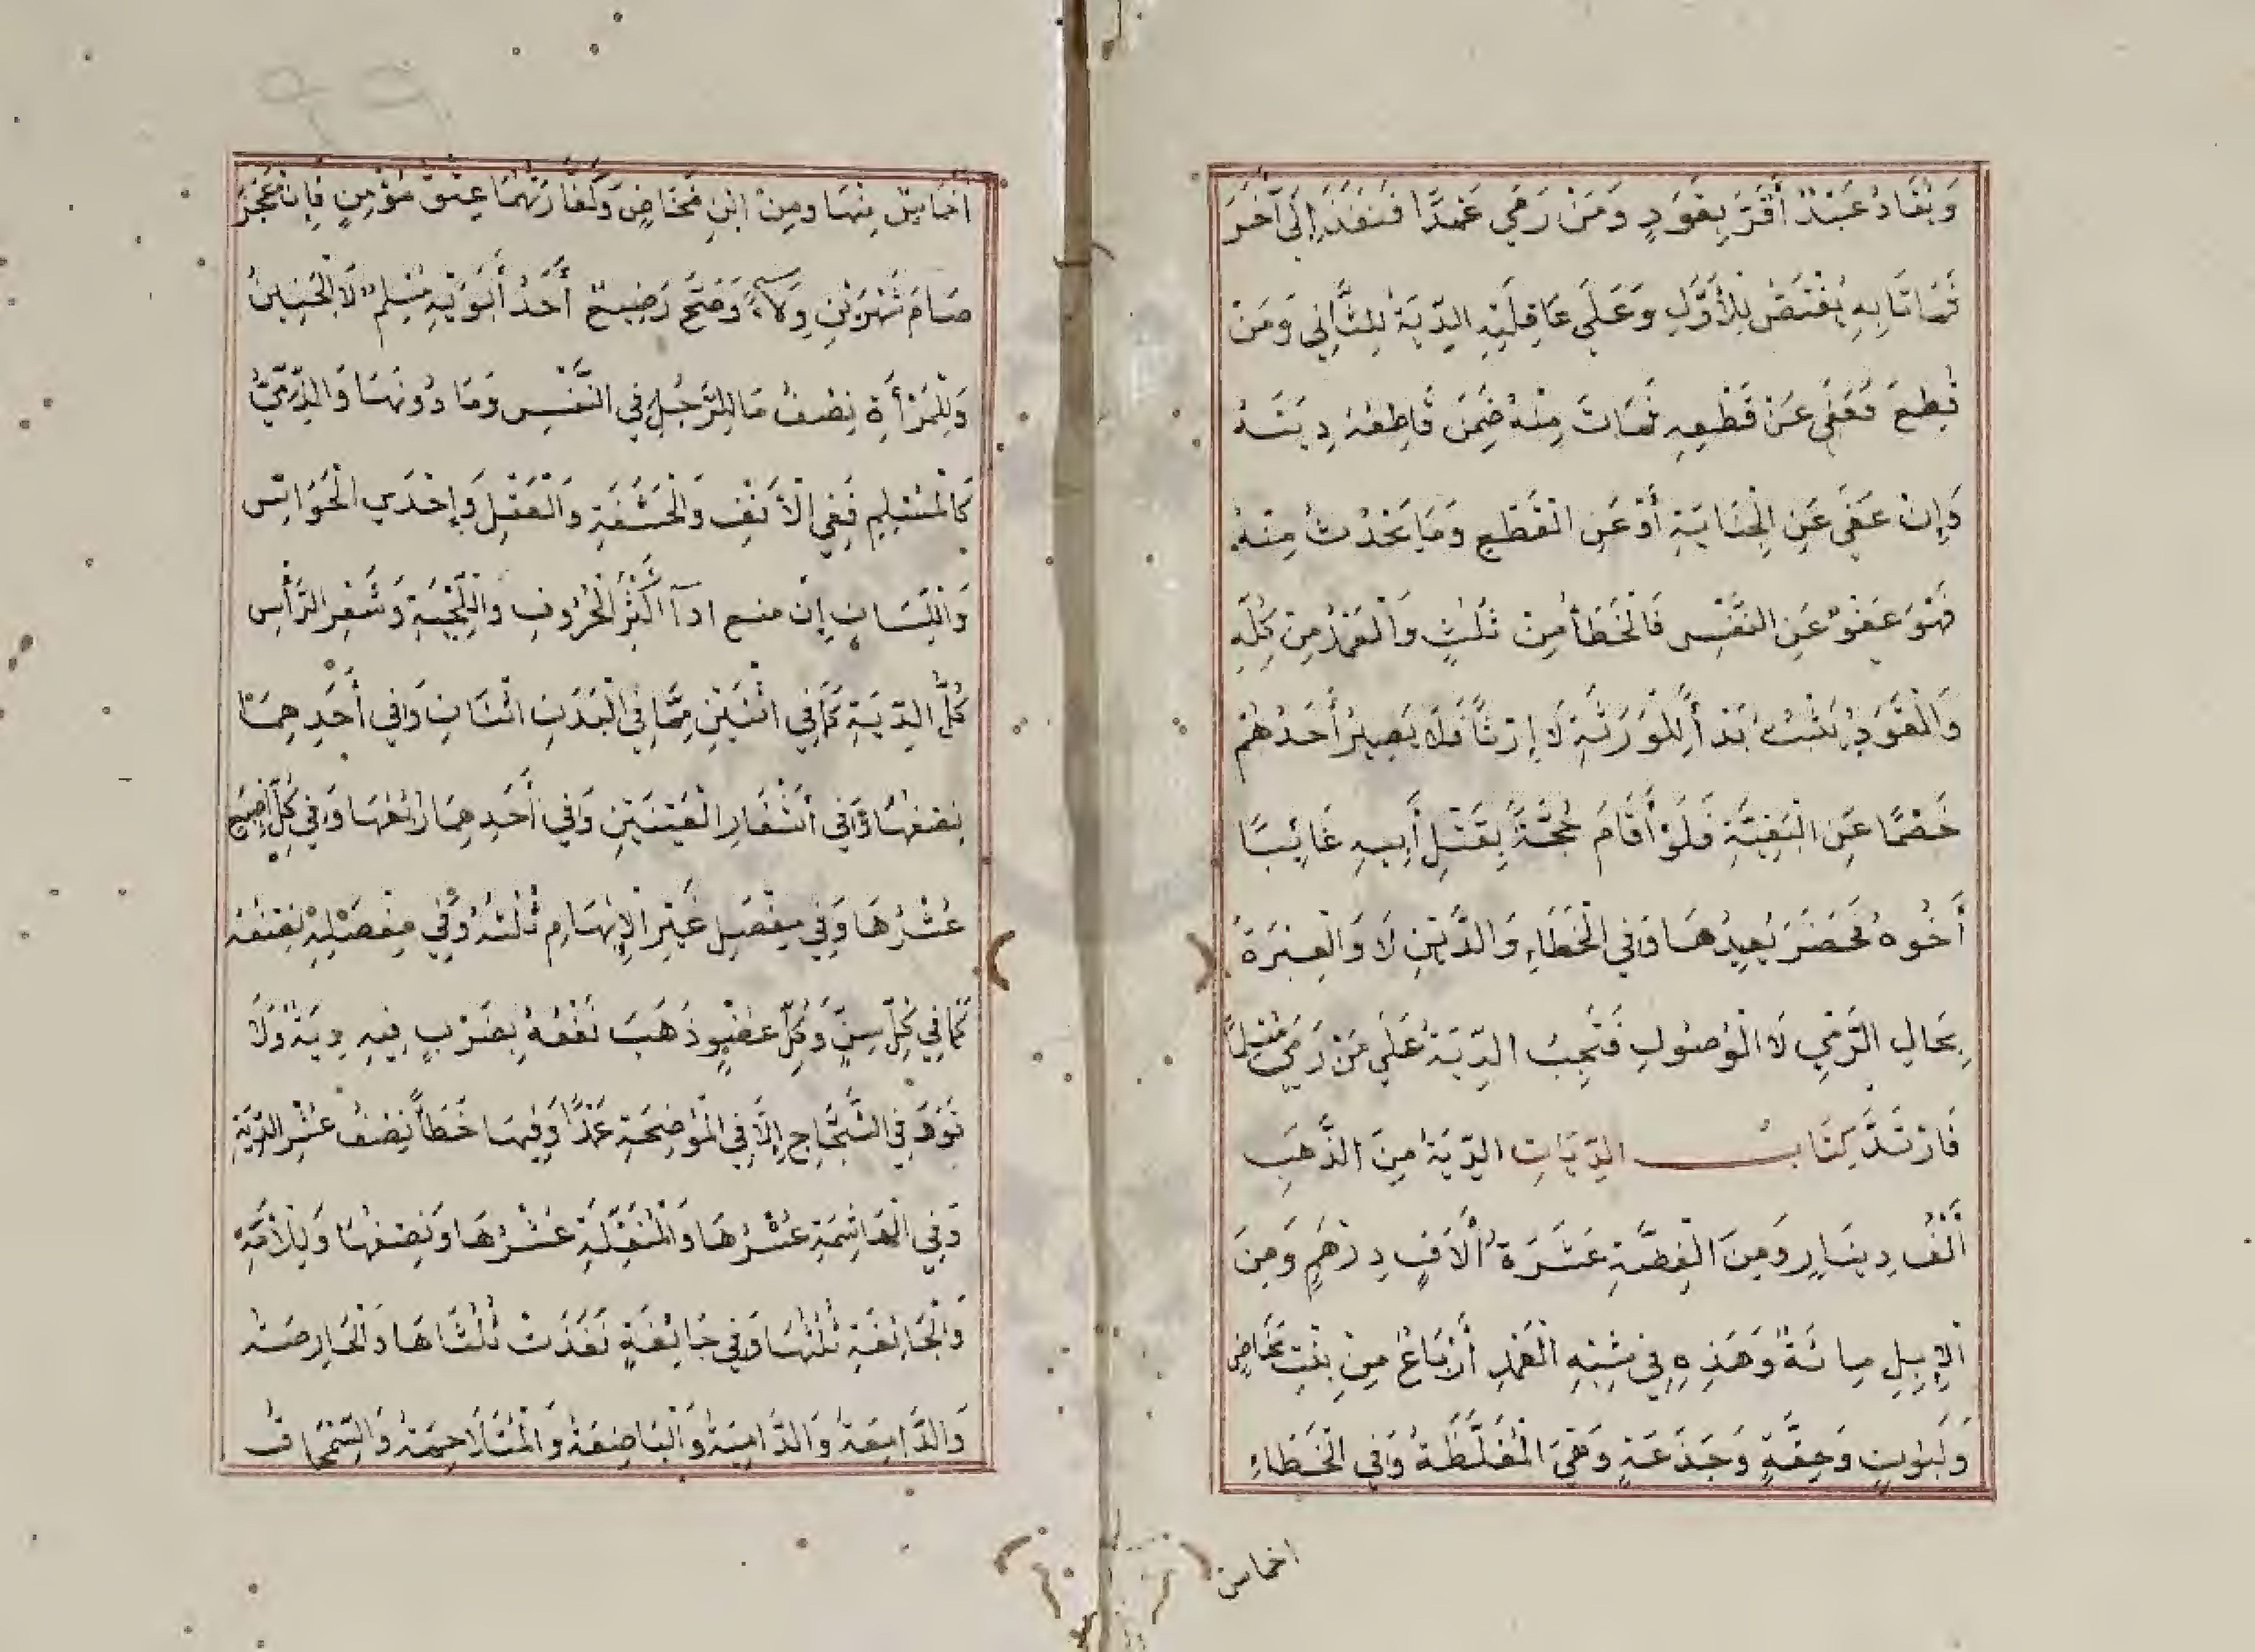 وَيُقَادُ عَبْدٌ أَقَرَّ بِقَوَدٍ وَمَنْ رَمَي عَمْدًا فَنَفَذَ إِلَى آخَرَ
فَمَاتَا بِهِ يُقْتَصُّ لِلْأَوَّلِ وَعَلَي عَاقِلَتِهِ الدِّيَةُ لِلثَّانِي وَمَنْ
قُطِعَ فَعَفَى عَنْ قَطْعِهِ فَمَاتَ مِنْهُ ضَمِنَ قَاطِعُهُ دِيَتَهُ
وَإِنْ عَفَى عَنِ الْجِنَايَةِ أَوْ عَنِ الْقَطْعِ وَمَا يَحْدُثُ مِنْهُ
فَهْوَ عَفْوٌ عَنِ النَّفْسِ فَالْخَطَأُ مِنْ ثُلُثٍ وَالْعَمْدُ مِنْ كُلِّهِ
وَالْقَوَدُ يَثْبُتُ بَدْأً لِلْوَرَثَةِ لَا إِرْثًا فَلَا يَصِيرُ أَحَدُهُمْ
خَصْمًا عَنِ الْبَقِيَّةِ فَلَوْ أَقَامَ حُجَّةً بِقَتْلِ أَبِيهِ غَائِبًا
أَخُوهُ فَحَضَرَ يُعِيدُهَا وَفِي الْخَطَاءِ وَالدَّيْنِ لَا وَالْعِبْرَةُ
بِحَالِ الرَّمْيِ لَا الْوُصُولِ فَتَجِبُ الدِّيَةُ عَلَي مَنْ رَمَي مُسْلِمًا
فَارْتَدَّ كِتَابُ الدِّيَاتِ الدِّيَةُ مِنَ الذَّهَبِ
أَلْفُ دِينَارٍ وَمِنَ الْفِضَّةِ عَشَرَةُ أَلَافِ دِرْهَمٍ وَمِنَ
الْإِبِلِ مِائَةٌ وَهَذِهِ فِي شِبْهِ الْعَمْدِ أَرْبَاعٌ مِنْ بِنْتِ مَخَاضٍ
وَلَبُونٍ وَحِقَّةٍ وَجَذَعَةٍ وَهْيَ الْمُغَلَّظَةُ وَفِي الْخَطَاءِ
اخماس
اخماسٌ مِنْهَا وَمِنْ ابْنِ مَخَاضٍ وَكَفَّارَتُهُمَا عِتْقُ مُؤْمِنٍ فَإِنْ عَجَزَ
صَامَ شَهْرَيْنِ وِلَاءً وَصَحَّ رَضِيعٌ أَحَدُ أَبَوَيْهِ مُسْلِمٌ لَا الْجَنِينُ
وَلِلْمَرْأَةِ نِصْفُ مَا لِلرَّجُلِ فِي النَّفْسِ وَمَا دُونَهَا وَالذِّمِّيُّ
كَالْمُسْلِمِ فَفِي الْأَنْفِ وَالْحَشَفَةِ وَالْعَقْلِ وَإِحْدَي الْحَوَاسِّ
وَاللِّسَانِ إِنْ منع ادآ أَكْثَرِ الْحُرُوفِ وَاللِّحْيَةِ وَشَعْرِ الرَّأْسِ
كُلُّ الدِّيَةِ كَمَا فِي اثْنَيْنِ مِمَّا فِي الْبَدَنِ اثْنَانِ وَفِي أَحَدِهِمَا
نِصْفُهَا وَفِي أَشْفَارِ الْعَيْنَيْنِ وَفِي أَحَدِهَا رُبُعُهَا وَفِي كُلِّ إِصْبَعٍ
عُشْرُهَا وَفِي مِفْصَلِ غَيْرِ الْإِبْهَامِ ثُلُثُهُ وَفِي مِفْصَلِهِ نِصْفُهُ
كَمَا فِي كُلِّ سِنٍّ وَكُلُّ عضْوٍ ذَهَبَ نَفْعُهُ بِضَرْبٍ فِيهِ دِيَةٌ وَلَا
قَوَدَ فِي الشِّجَاجِ إِلَّا فِي الْمُوضِحَةِ عَمْدًا وَفِيهَا خَطَأً نِصْفُ عُشْرِ الدِّيَةِ
وَفِي الْهَاشِمَةِ عُشْرُهَا وَالْمُنَقِّلَةِ عُشْرُهَا وَنِصْفُهَا وَالْأَمَّةِ
وَالْجَائِفَةِ ثُلُثُهَا وَفِي جَائِفَةٍ نَفَذَتْ ثُلُثَاهَا وَالْحَارِصَةُ
وَالدَّامِعَةُ وَالدَّامِيَةُ وَالْبَاضِعَةُ وَالْمُتَلَاحِمَةُ وَالسِّمْحَاقُ